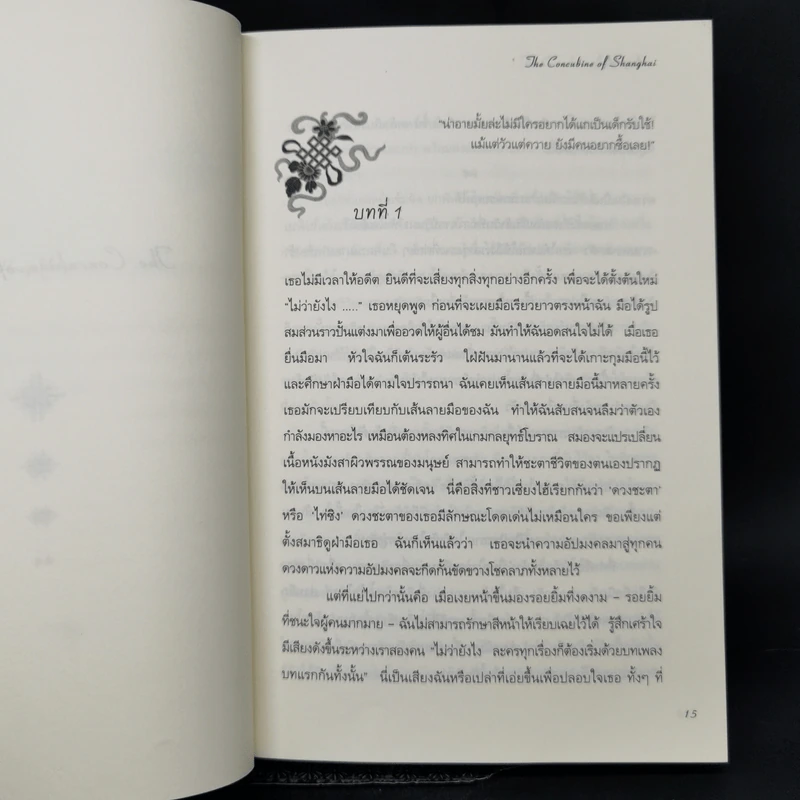 The Concubine of Shanghai
“น่าอายมั้ยล่ะไม่มีใครอยากได้แกเป็นเด็กรับใช้!
แม้แต่วัวแต่ควาย ยังมีคนอยากซื้อเลย!”
บทที่ 1
เธอไม่มีเวลาให้อดีต ยินดีที่จะเสี่ยงทุกสิ่งทุกอย่างอีกครั้ง เพื่อจะได้ตั้งต้นใหม่
“ไม่ว่ายังไง .....” เธอหยุดพูด ก่อนที่จะเผยมือเรียวยาวตรงหน้าฉัน มือได้รูป
สมส่วนราวปั้นแต่งมาเพื่ออวดให้ผู้อื่นได้ชม มันทำให้ฉันอดสนใจไม่ได้ เมื่อเธอ
ยื่นมือมา หัวใจฉันก็เต้นระรัว ใฝ่ฝันมานานแล้วที่จะได้เกาะกุมมือนี้ไว้
และศึกษาฝ่ามือได้ตามใจปรารถนา ฉันเคยเห็นเส้นสายลายมือนี้มาหลายครั้ง
เธอมักจะเปรียบเทียบกับเส้นลายมือของฉัน ทำให้ฉันสับสนจนลืมว่าตัวเอง
กำลังมองหาอะไร เหมือนต้องหลงทิศในเกมกลยุทธ์โบราณ สมองจะแปรเปลี่ยน
เนื้อหนังมังสาผิวพรรณของมนุษย์ สามารถทำให้ชะตาชีวิตของตนเองปรากฏ
ให้เห็นบนเส้นลายมือได้ชัดเจน นี่คือสิ่งที่ชาวเซี่ยงไฮ้เรียกกันว่า ‘ดวงชะตา’
หรือ ‘ไท่ซิง’ ดวงชะตาของเธอมีลักษณะโดดเด่นไม่เหมือนใคร ขอเพียงแต่
ตั้งสมาธิดูฝ่ามือเธอ ฉันก็เห็นแล้วว่า เธอจะนำความอัปมงคลมาสู่ทุกคน
ดวงดาวแห่งความอัปมงคลจะกีดกั้นขัดขวางโชคลาภทั้งหลายไว้
แต่ที่แย่ไปกว่านั้นคือ เมื่อเงยหน้าขึ้นมองรอยยิ้มที่งดงาม – รอยยิ้ม
ที่ชนะใจผู้คนมากมาย – ฉันไม่สามารถรักษาสีหน้าให้เรียบเฉยไว้ได้ รู้สึกเศร้าใจ
มีเสียงดังขึ้นระหว่างเราสองคน “ไม่ว่ายังไง ละครทุกเรื่องก็ต้องเริ่มด้วยบทเพลง
บทแรกกันทั้งนั้น” นี่เป็นเสียงฉันหรือเปล่าที่เอ่ยขึ้นเพื่อปลอบใจเธอ ทั้งๆ ที่
15